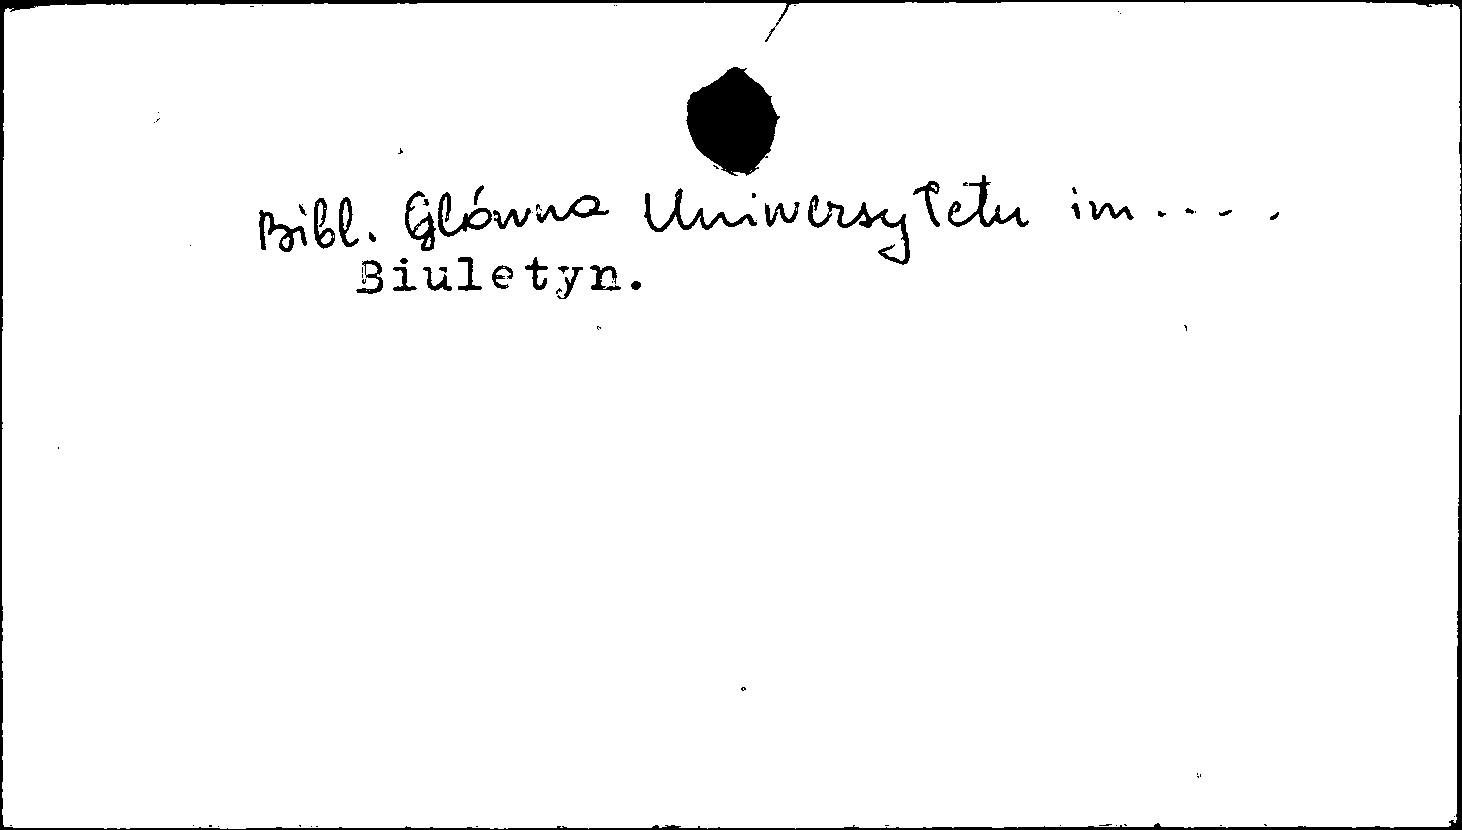 Bibl. Główna Uniwersytetu im....
Biuletyn.